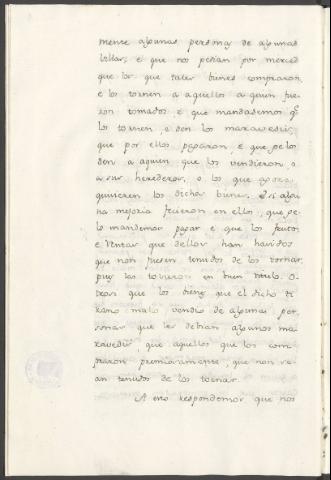 mente algunas personas de algunas
villas, e que nos pedian por merced
que los que tales bienes compraron,
e los tornen a aquellos a quien fue-
ron tomados e que mandasemos qe.
los tornen, e den los maravedis,
que por ellos pagaron, e que se los
den a quien que los vendieron o
a sus herederos, o los que agora
quisieren los dichos bienes. E si algu-
na mejoria ficieron en ellos, que ge-
lo mandemos pagar e que los frutos
e rentas que dellos han havidos
que non fuesen tenudos de los tornar,
pues las tovieron en buen titulo. O-
trosi que los bienes que el dicho ti-
rano malo vendio de algunas per-
sonas que les debian algunos ma-
ravedis, que aquellos que los com-
praron primeramente, que non se-
an tenudos de los tornar.
A esto respondemos que nos